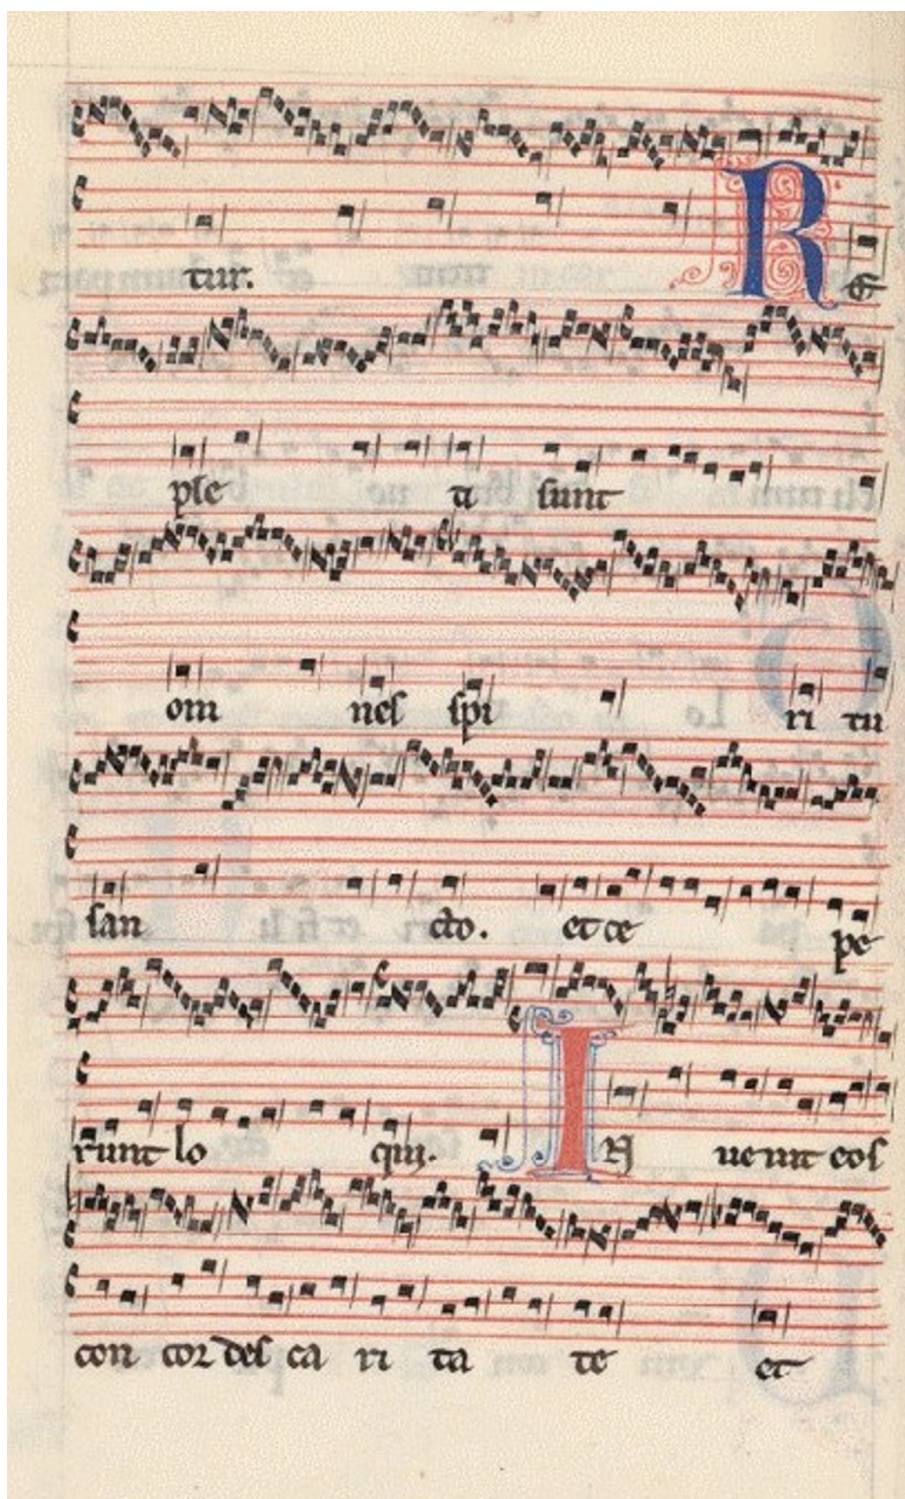 tur. R e
ple ti sunt
om nes spi ri tu
san cto. et ce pe
runt lo qui. I N ue nit eos
con cor des ca ri ta te et